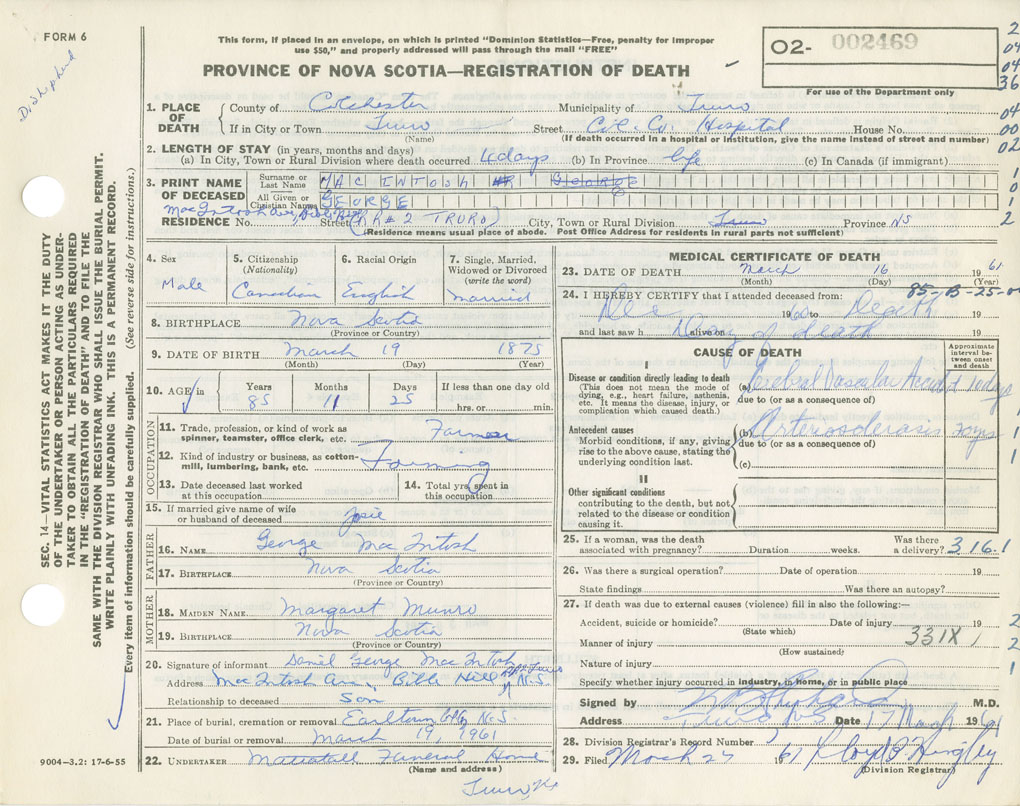 FORM 6
This form, if placed in an envelope, on which is printed "Dominion Statistics—Free, penalty for improper
use $50," and properly addressed will pass through the mail "FREE"
O2- 002469
For use of the Department only
PROVINCE OF NOVA SCOTIA—REGISTRATION OF DEATH
2
04
04
36
04
00
02
1
0
1
2
1. PLACE OF DEATH
County of Colchester Municipality of Truro
If in City or Town Truro Street Col. Co. Hospital House No.
(Name) (If death occurred in a hospital or institution, give the name instead of street and number)
2. LENGTH OF STAY (in years, months and days)
(a) In City, Town or Rural Division where death occurred 4 days (b) In Province life (c) In Canada (if immigrant)
3. PRINT NAME OF DECEASED
Surname or Last Name MACINTOSH GEORGE
All Given or Christian Names GEORGE
MacIntosh Ave, Bible Hill
RESIDENCE No. Street (RR#2 TRURO) City, Town or Rural Division Truro Province NS
(Residence means usual place of abode. Post Office Address for residents in rural parts not sufficient)
4. Sex
Male
5. Citizenship
(Nationality)
Canadian
6. Racial Origin
English
7. Single, Married,
Widowed or Divorced
(write the word)
married
8. BIRTHPLACE Nova Scotia
(Province or Country)
9. DATE OF BIRTH March 19 1875
(Month) (Day) (Year)
10. AGE in
Years Months Days If less than one day old
85 11 25 hrs. or min.
OCCUPATION
11. Trade, profession, or kind of work as
spinner, teamster, office clerk, etc. Farmer
12. Kind of industry or business, as cotton-
mill, lumbering, bank, etc. Farming
13. Date deceased last worked
at this occupation
14. Total yrs. spent in
this occupation
15. If married give name of wife
or husband of deceased Josie
FATHER
16. NAME George MacIntosh
17. BIRTHPLACE Nova Scotia
(Province or Country)
MOTHER
18. MAIDEN NAME Margaret Munro
19. BIRTHPLACE Nova Scotia
(Province or Country)
20. Signature of informant Daniel George MacIntosh
Address MacIntosh Ave, Bible Hill RR2 Truro N.S.
Relationship to deceased Son
21. Place of burial, cremation or removal Earltown N.S.
Date of burial or removal March 19, 1961
22. UNDERTAKER Mattatall Funeral Home
(Name and address)
Truro, NS
MEDICAL CERTIFICATE OF DEATH
23. DATE OF DEATH March 16 1961
(Month) (Day) (Year)
85-B-25-
24. I HEREBY CERTIFY that I attended deceased from:
Dec 1960 to Death
and last saw h alive on Day of death
CAUSE OF DEATH
Approximate
interval be-
tween onset
and death
I
Disease or condition directly leading to death
(This does not mean the mode of
dying, e.g., heart failure, asthenia,
etc. It means the disease, injury, or
complication which caused death.)
(a) Cerebral Vascular Accident days
due to (or as a consequence of)
Antecedent causes
Morbid conditions, if any, giving
rise to the above cause, stating the
underlying condition last.
(b) Arterosclerosis yrs
due to (or as a consequence of)
(c)
II
Other significant conditions
contributing to the death, but not
related to the disease or condition
causing it.
25. If a woman, was the death
associated with pregnancy? Duration weeks. Was there
a delivery? 316-1
26. Was there a surgical operation? Date of operation 19
State findings Was there an autopsy?
27. If death was due to external causes (violence) fill in also the following:—
Accident, suicide or homicide? Date of injury 19
(State which)
Manner of injury 331X
(How sustained)
Nature of injury
Specify whether injury occurred in industry, in home, or in public place
Signed by M.D.
Address Truro NS Date 17 March 1961
28. Division Registrar's Record Number
29. Filed March 27 1961
(Division Registrar)
SEC. 14—VITAL STATISTICS ACT MAKES IT THE DUTY
OF THE UNDERTAKER OR PERSON ACTING AS UNDER-
TAKER TO OBTAIN ALL THE PARTICULARS REQUIRED
IN THE "REGISTRATION OF DEATH" AND TO FILE THE
SAME WITH THE DIVISION REGISTRAR WHO SHALL ISSUE THE BURIAL PERMIT.
WRITE PLAINLY WITH UNFADING INK. THIS IS A PERMANENT RECORD.
Every item of information should be carefully supplied. (See reverse side for instructions.)
9004-3.2: 17-6-55